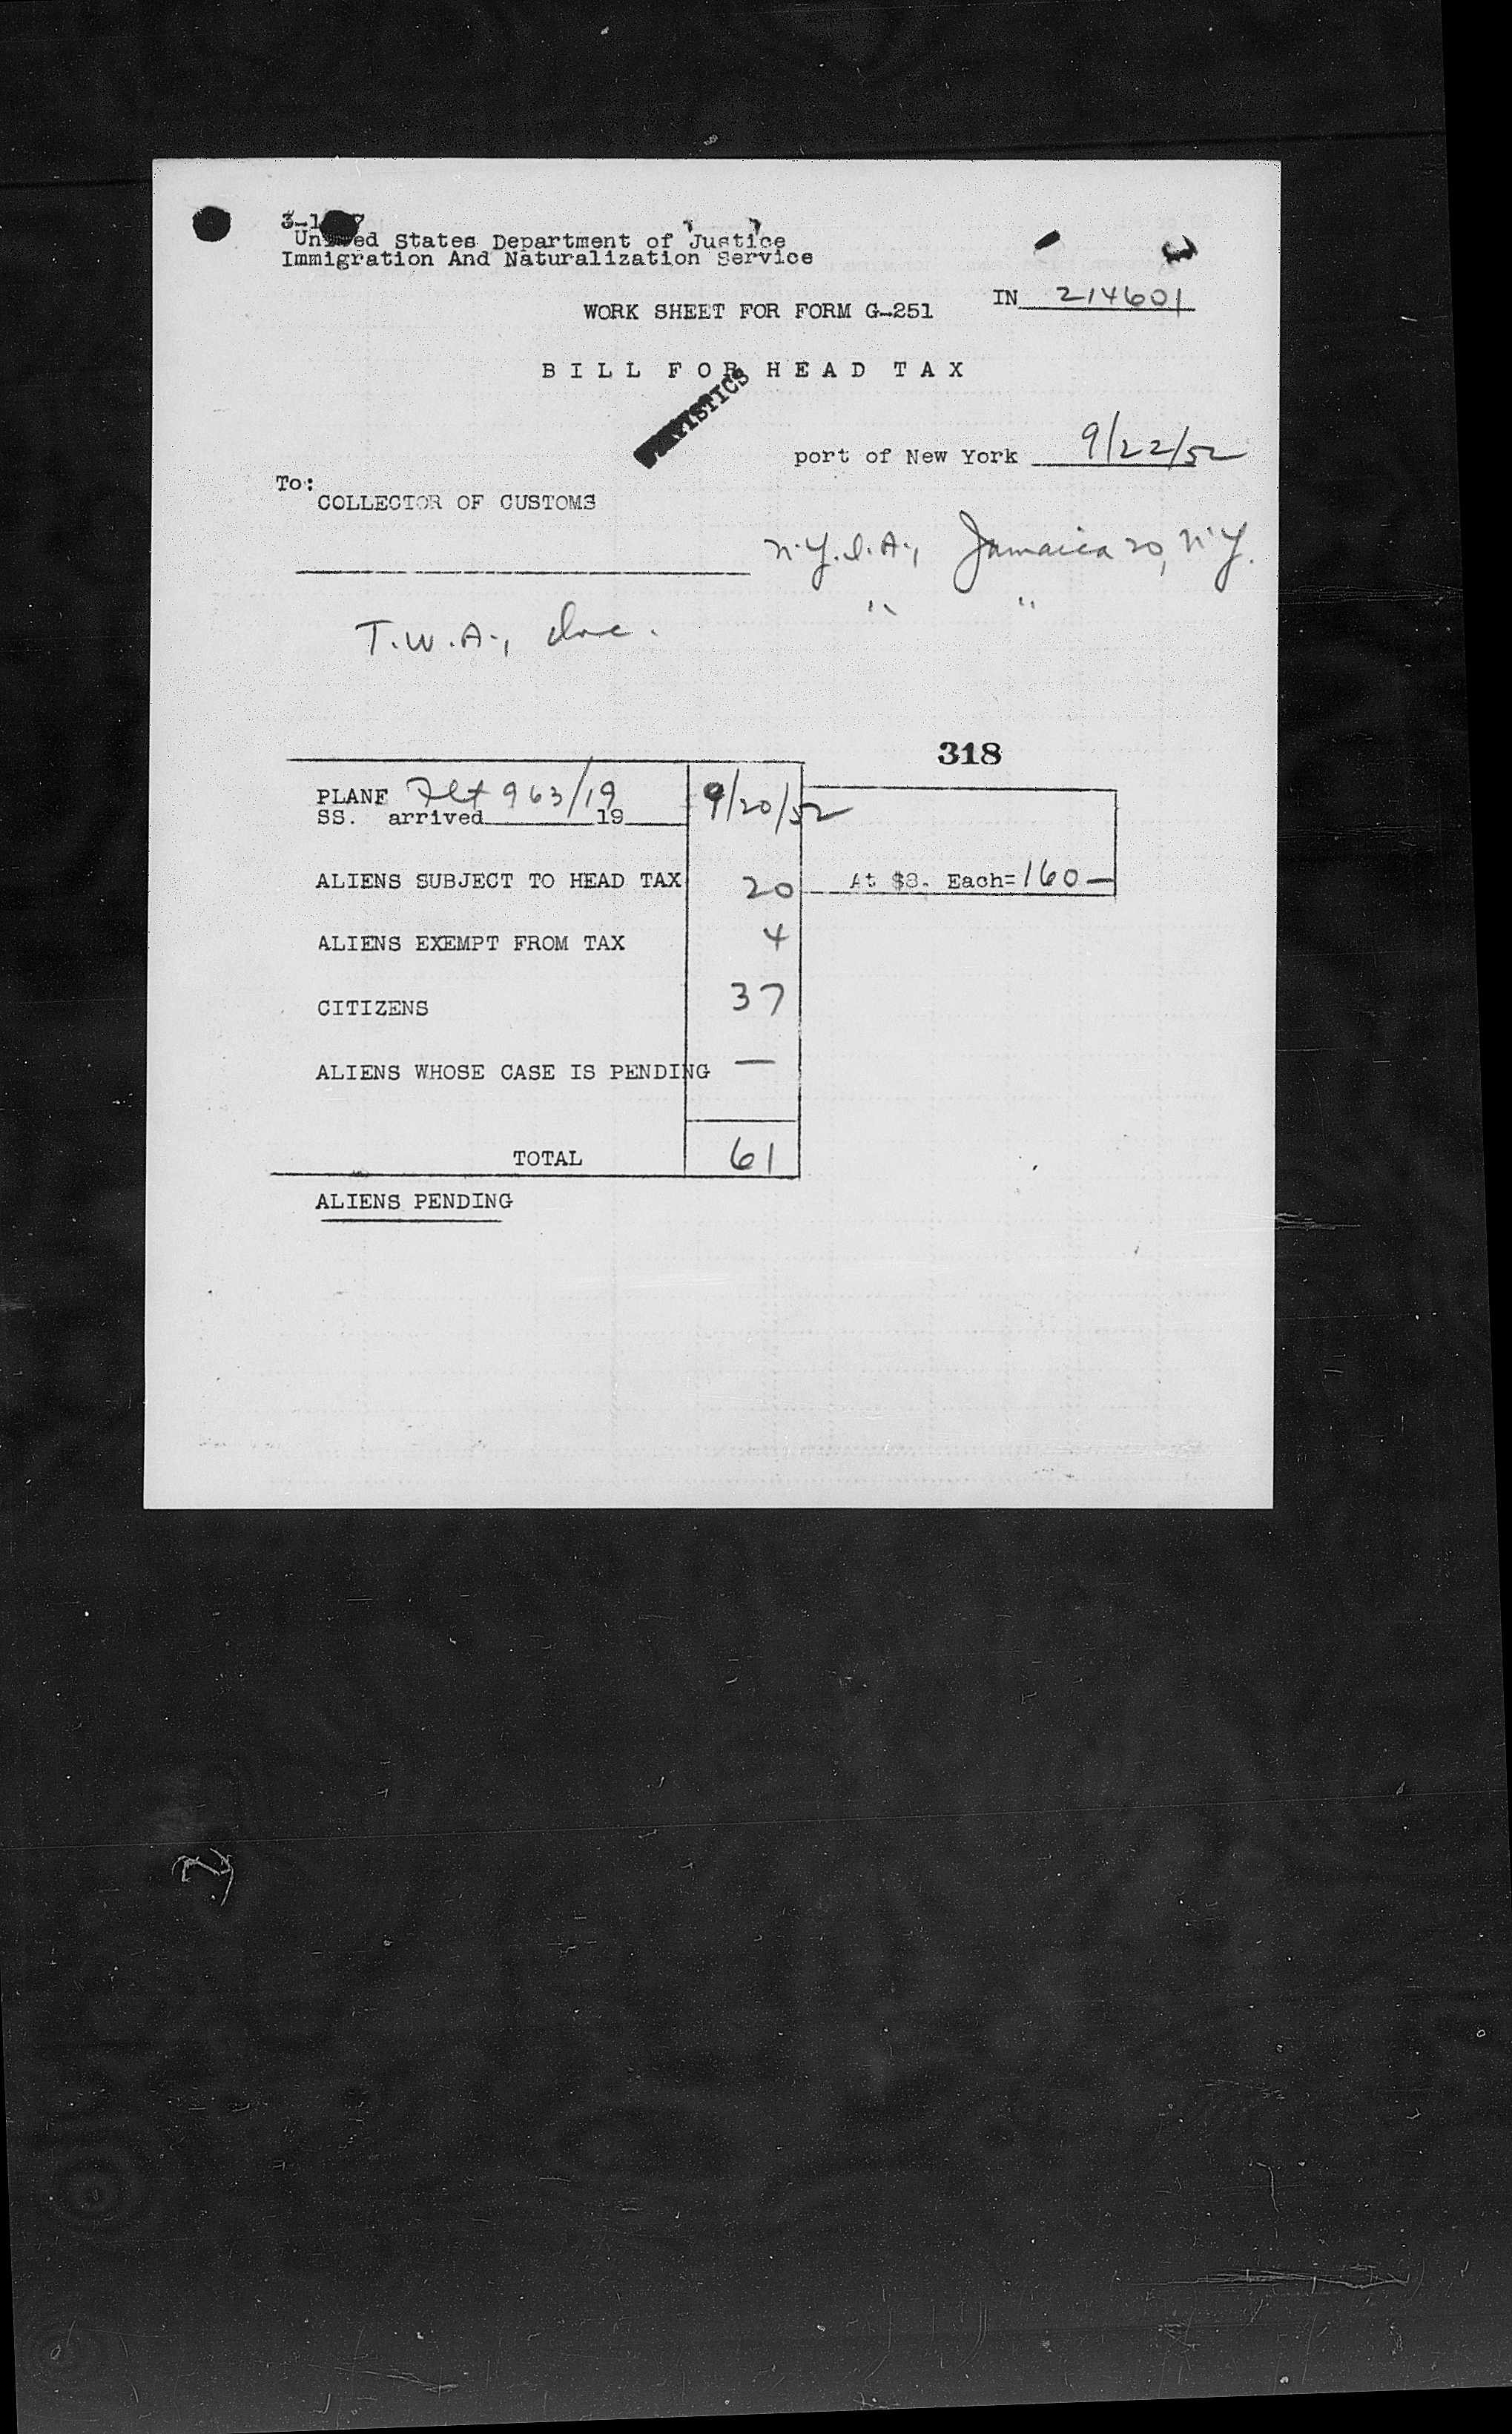 United States Department of Justice
Immigration And Naturalization Service
IN 214601
WORK SHEET FOR FORM G-251
BILL FOR HEAD TAX
port of New York 9/22/52
To:
COLLECTOR OF CUSTOMS
N.Y.I.A., Jamaica 20, N.Y.
" "
T.W.A., Inc.
318
PLANE Flt 963/19 9/20/52
SS. arrived 19
ALIENS SUBJECT TO HEAD TAX 20 At $8. Each=160—
ALIENS EXEMPT FROM TAX 4
CITIZENS 37
ALIENS WHOSE CASE IS PENDING —
TOTAL 61
ALIENS PENDING